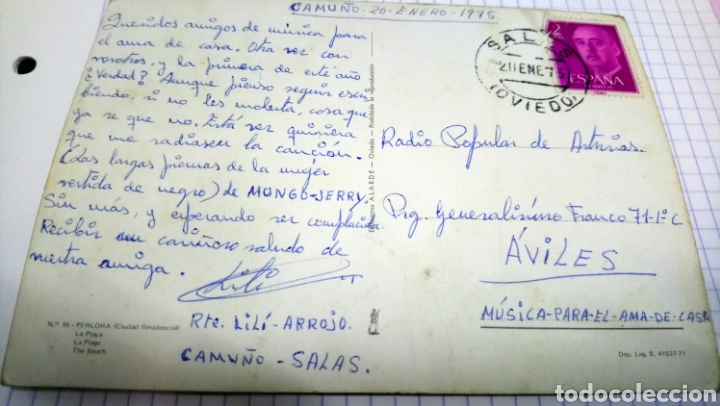 CAMUÑO-20-ENERO-1975
Queridos amigos de música para
el ama de casa. Otra vez con
vosotros, y la primera de este año
¿Verdad? Aunque pienso seguir escri-
biendo, si no les molesta, cosa que
ya se que no. Esta vez quisiera
que me radiasen la canción.
(Las largas piernas de la mujer
vestida de negro) de MUNGO-JERRY.
Sin más, y esperando ser complacida
Recibir un cariñoso saludo de
vuestra amiga.
Lili
Rte. LILÍ-ARROJO.
CAMUÑO-SALAS.
N.º 16 - PERLORA (Ciudad Residencial)
La Playa
La Plage
The Beach
ALARDE - Oviedo - Prohibida la reproducción
SALAS
20 ENE 75
(OVIEDO)
2
PTAS
ESPAÑA
CORREOS
Radio Popular de Asturias.
Prg. Generalísimo Franco 71-1º C
ÁVILES
MÚSICA-PARA-EL-AMA-DE-CASA
Dep. Leg. B. 41537-71
todocoleccion